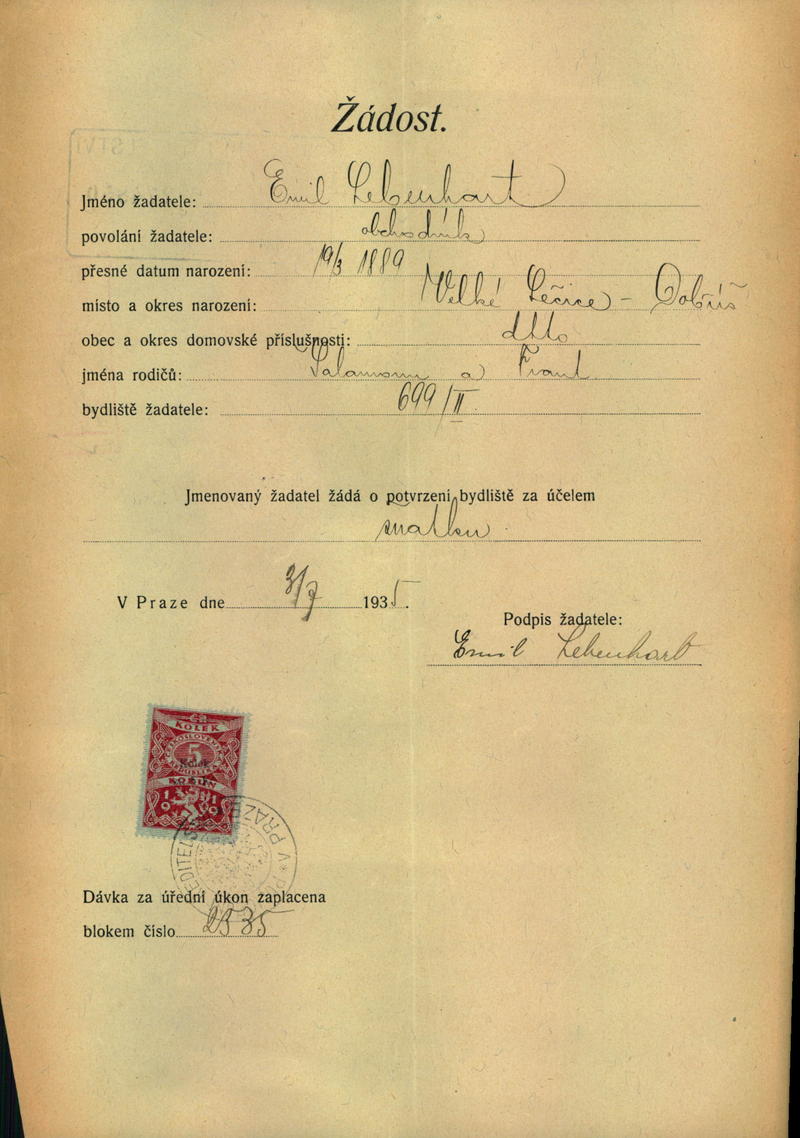 Žádost.
Jméno žadatele: Emil Lebenhart
povolání žadatele: obchodník
přesné datum narození: 19/3 1889
místo a okres narození: Velké Lečice - Dobříš
obec a okres domovské příslušnosti: dtto
jména rodičů: Salamoun a
bydliště žadatele: 699/II
Jmenovaný žadatel žádá o potvrzení bydliště za účelem
V Praze dne 1935.
Podpis žadatele:
Emil Lebenhart
KOLEK
5
Kolek
KORUN
1919
PRAZE
Dávka za úřední úkon zaplacena
blokem číslo 2535